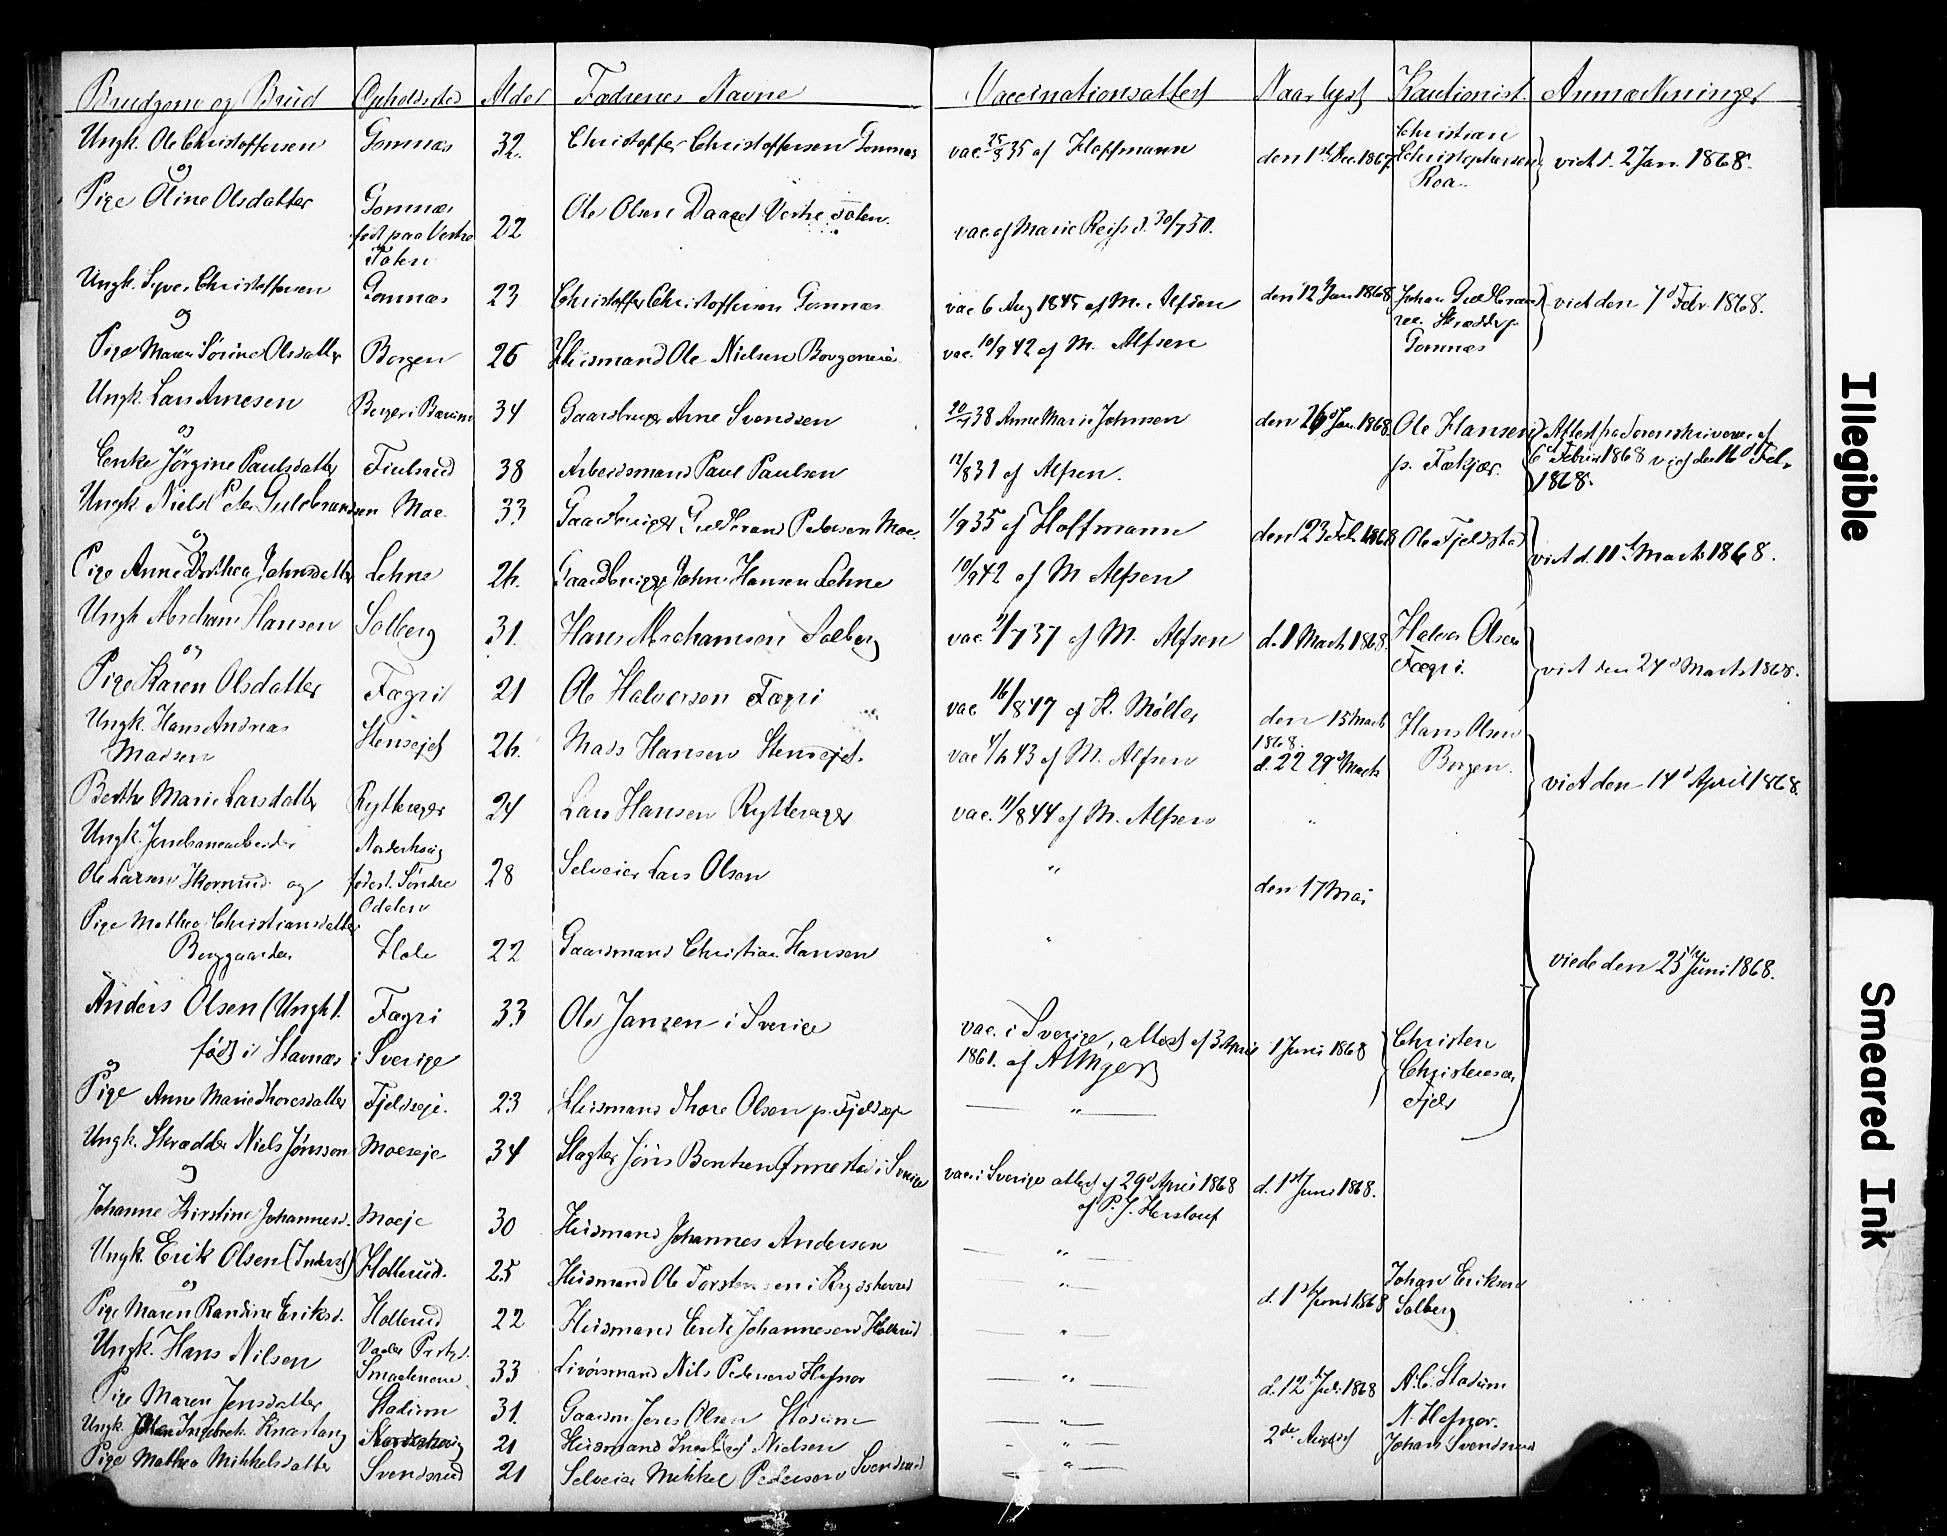 Brudgom og Brud Opholdssted Alder Fædrenes Navne Vaccinationsattest Naar lyst Kautionist. Anmærkninger
Ungk. Ole Christoffersen Gomnæs 32. Christoffer Christoffersen Gomnæs vac. 35 af Hoffmann den 1ste Dec. 1867. Christian Christophersen Roa. viet d. 2 Jan. 1868.
og
Pige Oline Olsdatter Gomnæs født paa Vestre Toten 22 Ole Olsen Vestre Toten. vac. af Marie d. 30/7 50.
Ungk. Syver Christoffersen Gomnæs 23 Christoffer Christoffersen Gomnæs vac 6 Aug 1845 af M. Alfsen den 12 Jan. 1868 Johan Gomnæs viet den 7d Febr. 1868.
og
Pige Maren Sørine Olsdatter Borgen 26 Huusmand Ole Nielsen vac. 10/9 42 af M. Alfsen
Ungk. Lars Arnesen 34 Gaardbruger Arne Svendsen 38 Anne Marie Johnsen den 26d Jan. 1868. Ole Hansen Attest fra Sorenskriveren af
og
Enke Jørgine Paulsdatter Fiulsrud 38 Arbeidsmand Paul Paulsen 12/8 31 af Alfsen. p. 6d Februar 1868 den 16d Feb. 1868.
Ungk. Niels Peter Guldbrandsen Moe 33 Gaardbruger Guldbrand Pedersen Moe. 1/9 35 af Hoffmann den 23 Feb. 1868 Ole Fjeldstad viet d. 11te Marts 1868.
og
Pige Anne Dorthea Johnsdatter Lehne 26. Gaardbruger John Hansen Lehne 10/9 42 af M Alfsen
Ungk Abraham Hansen Solberg 31. Hans Abrahamsen Solberg vac. 2/7 37 af M. Alfsen d. 1 Marts 1868. Halvor Olsen Fægri. viet den 24d Marts 1868.
og
Pige Karen Olsdatter Fægri 21 Ole Halvorsen Fægri vac 16/8 47 af K. Møller
Ungk. Hans Andreas Madsen Stensejet 26. Mads Hansen Stensejet. vac 4/6 43 af M. Alfsen den 15 Marts 1868. d. 22 29d Marts Hans Olsen Borgen. viet den 14d April 1868.
Berthe Marie Larsdatter Rytterager 24 Lars Hansen Rytterager vac. 11/8 44 af M. Alfsen "
Ungk. Jernbanearbeider Norderhoug
Ole Larsen og fødest. Søndre Odalen 28 Selveier Lars Olsen " den 17 Mai
Pige Mathea Christiansdatter
Berggaarden Hole 22 Gaardmand Christian Hansen " viede den 25de Juni 1868.
Anders Olsen (Ungk). Fægri 33 Ole Jansen i Sverige vac. i Sverige, attest af 3 April 1861. af 1 Juni 1868 Christen Christensen Fjeld
født i Stavnæs i Sverige
og
Pige Anne Marie Thoresdatter Fjeldseje. 23 Huusmand Thore Olsen p. Fjeldseje "
Ungk. Skrædder Niels Jønsson Moeseje 34 Slagter Jöns i Sverige vac. i Sverige attest af 29d April 1868 af P. J. d. 1ste Juni 1868.
og
Johanne Kirstine Johannesd. Moeje 30 Huusmand Johannes Andersen "
Ungk. Erik Olsen Hollerud. 25 Huusmand Ole Torstensen i " d. 1ste Juni 1868 Johan Eriksen Solberg
og
Pige Maren Randine Eriksd. Hollerud 22 Huusmand Johannesen Hollerud "
Ungk. Hans Nilsen Smaalenene 33 Nils Pedersen " d. 12 Juli 1868 Stadum
Pige Maren Jensdatter Stadum 31. Gaardm. Jens Olsen Stadum " N. Hafnor.
Ungk. Norderhoug 21 Huusmand Nielsen " 2den August Johan Svendsrud
Pige Mathea Mikkelsdatter Svendsrud 21 Selveier Mikkel Pedersen Svendsrud "
Illegible
Smeared Ink